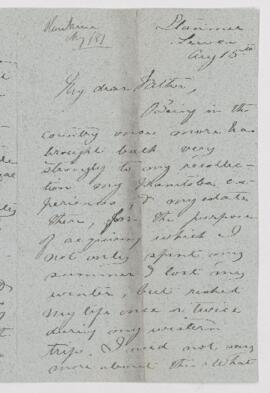 Aug 15th
My dear Father,
Being in the
country once more has
brought back very
strongly to my recollec-
tion my Manitoba ex-
perience, & my estate
there, for the purpose
of acquiring which I
not only spent my
summer & lost my
winter, but risked
my life once or twice
during my western
trip. I need not say
more about this. What